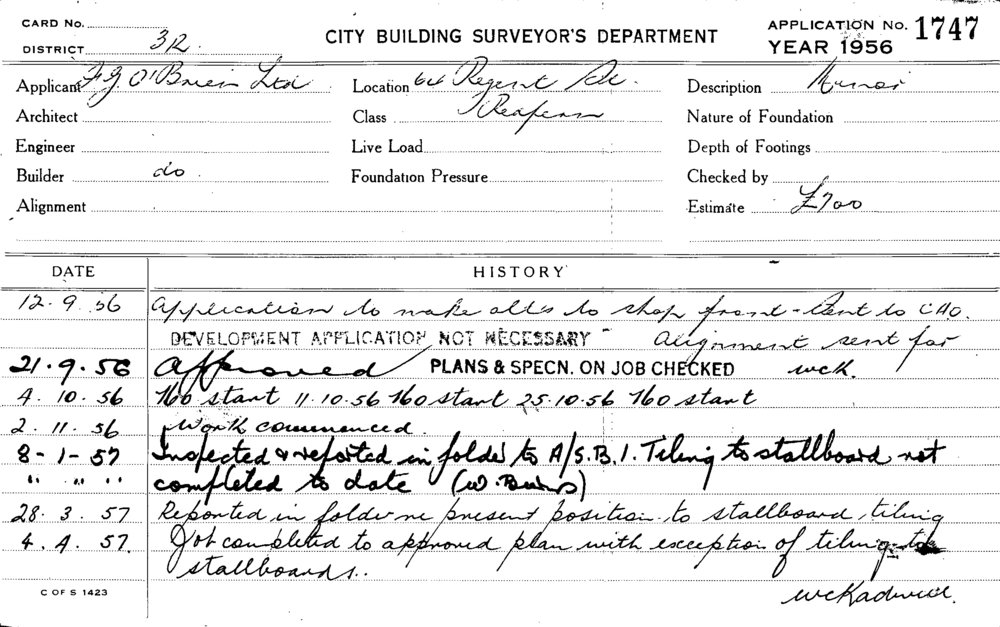 CARD No.
DISTRICT 3R.
CITY BUILDING SURVEYOR'S DEPARTMENT
APPLICATION No. 1747
YEAR 1956
Applicant F.J. O'Brien Ltd Location 64 Regent St. Description Minor
Architect Class Nature of Foundation
Engineer Live Load Depth of Footings
Builder do Foundation Pressure Checked by
Alignment Estimate £700
DATE HISTORY
12.9.56 Application to make alts to shop front - Sent to CHO.
DEVELOPMENT APPLICATION NOT NECESSARY - Alignment sent for
21.9.56 Approved PLANS & SPECN. ON JOB CHECKED wck.
4.10.56 No start 11.10.56 No start 25.10.56 No start
2.11.56 Work commenced.
8-1-57 Inspected & reported in folder to A/S.B.I. Tiling to stallboard not
" " " completed to date (W. Burns)
28.3.57 Reported in folder re present position to stallboard tiling
4.4.57. Job completed to approved plan with exception of tiling to
stallboards..
C OF S 1423